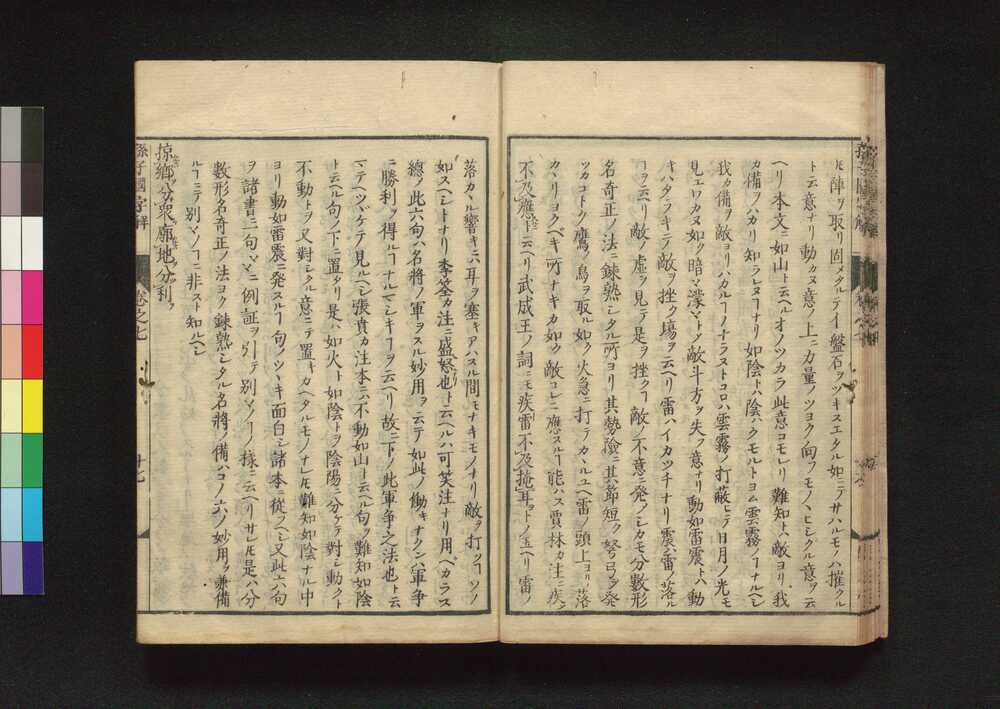 トモ陣ヲ取リ固メタルテイ盤石ヲツキスエタル如ニテサハルモノハ摧クル
ト云意ナリ動カヌ意ノ上ニ力量ノツヨク向フモノヽヒシクル意ヲ云
ヘリ本文ニ如山ト云ヘルオノツカラ此意コモレリ難知トハ敵ヨリ我
カ備ヲハカリ知ラレヌヿナリ如陰トハ陰ハクモルトヨム雲霧ノヿナルヘシ
我カ備ヲ敵ヨリハカルヿノナラストコロハ雲霧ノ打蔽ヒテ日月ノ光モ
見エワカヌ如ク暗マ濛マトノ敵斗方ヲ失フ意ナリ動如雷震トハ動
キハタラキニテ敵ヲ挫ク場ヲ云ヘリ雷ハイカツチナリ震ハ雷ノ落ル
ヿヲ云ヘリ敵ノ虚ヲ見テ是ヲ挫クヿ敵ノ不意ニ発ノシカモ分數形
名奇正ノ法ニ錬熟シタル所ヨリ其勢險ニ其節短ク弩弓ヲ發
ツカコトク鷹ノ鳥ヲ取ル如ク火急ニ打テカヽルユヘ雷ノ頭上ヨリ落
カヽリヨクヘキ所ナキカ如ク敵コレニ應スルヿ能ハス賈林カ注ニ疾
不及應ト云ヘリ武成王ノ詞ニモ疾雷不及掩耳ヲトノ玉ヘリ雷ノ
落カヽル響キニハ耳ヲ塞キアハスル間モナキモノナリ敵ヲ打ツヿソノ
如スヘシトナリ李筌カ注ニ盛怒也ト云ヘルハ可笑注ナリ用ヘカラス
總ノ此六句ハ名將ノ軍ヲスル妙用ヲ云テ如此ノ働キナクンハ軍争
ニ勝利ヲ得ルヿナルマシキヿヲ云ヘリ故ニ下ノ此軍争之法也ト云
マテヘツヾケテ見ルヘシ張賁カ注本ニハ不動如山ト云ヘル句ヲ難知如陰
ト云ヘル句ノ下ニ置タリ是ハ如火ト如陰トヲ陰陽ニ分ケテ對シ動クト
不動トヲ又對シタル意ニテ置キカヘタルモノナレ𪜈難知如陰ナル中
ヨリ動如雷震ニ発スルヿ句ノツヽキ面白シ諸本ニ從フヘシ又此六句
ヲ諸書ニ一句マニ例証ヲ引テ別マノヿノ様ニ云ヘリサレ𪜈是ハ分
數形名奇正ノ法ヨク錬熟シタル名將ノ備ハコノ六ノ妙用ヲ兼備
ルヿニテ別マノヿニ非スト知ルヘシ
掠郷分衆廓地分利ヲ
孫子國字解 卷之七 十七